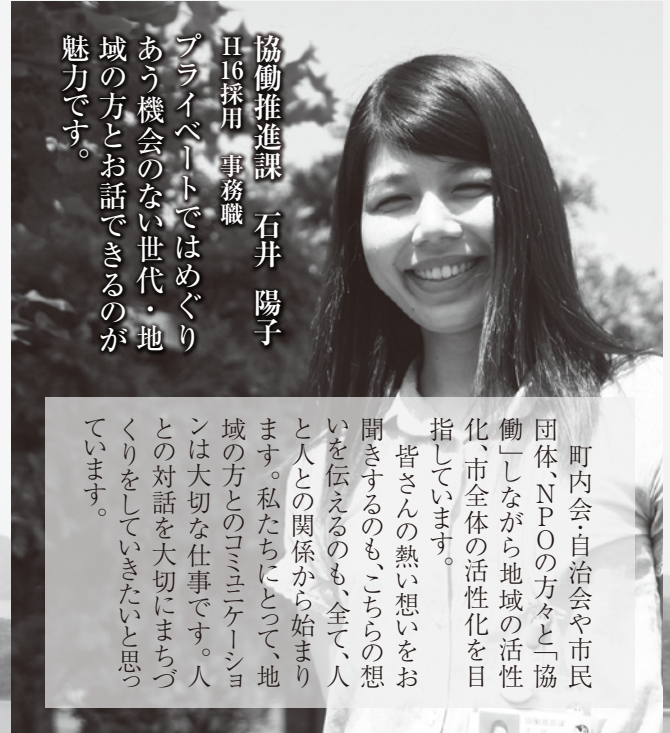 協働推進課　石井　陽子
H16採用　事務職
プライベートではめぐり
あう機会のない世代・地
域の方とお話できるのが
魅力です。
町内会・自治会や市民
団体、NPOの方々と「協
働」しながら地域の活性
化、市全体の活性化を目
指しています。
皆さんの熱い想いをお
聞きするのも、こちらの想
いを伝えるのも、全て、人
と人との関係から始まり
ます。私たちにとって、地
域の方とのコミュニケーショ
ンは大切な仕事です。人
との対話を大切にまちづ
くりをしていきたいと思っ
ています。